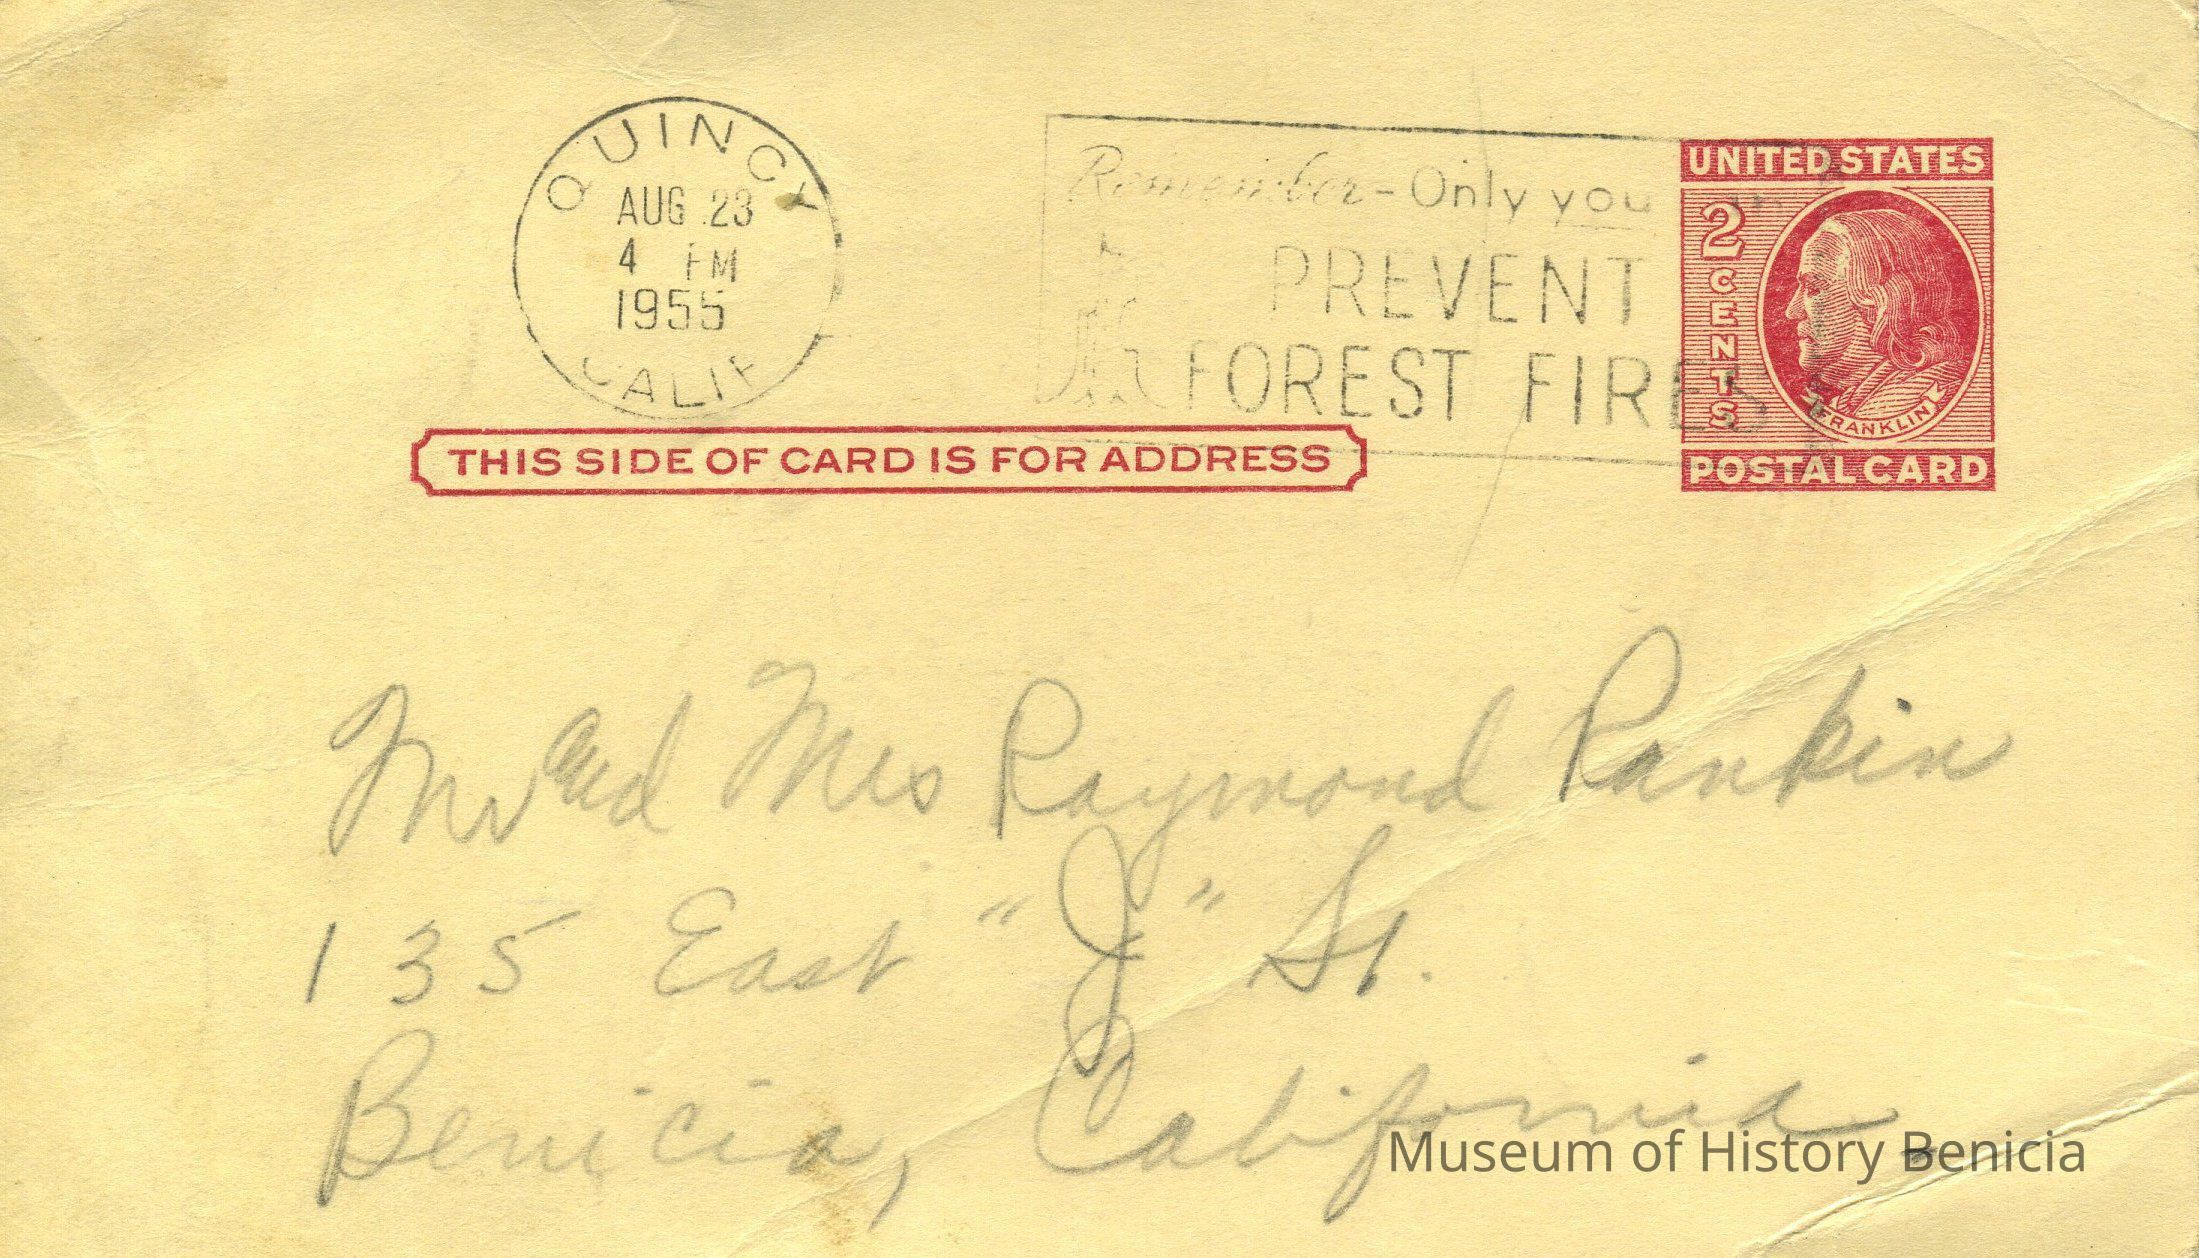 QUINCY
AUG 23
4 PM
1955
CALIF
Remember - Only you
PREVENT
FOREST FIRES
UNITED STATES
2 CENTS
FRANKLIN
POSTAL CARD
THIS SIDE OF CARD IS FOR ADDRESS
Mr and Mrs Raymond Rankin
135 East "J" St.
Benicia, California
Museum of History Benicia